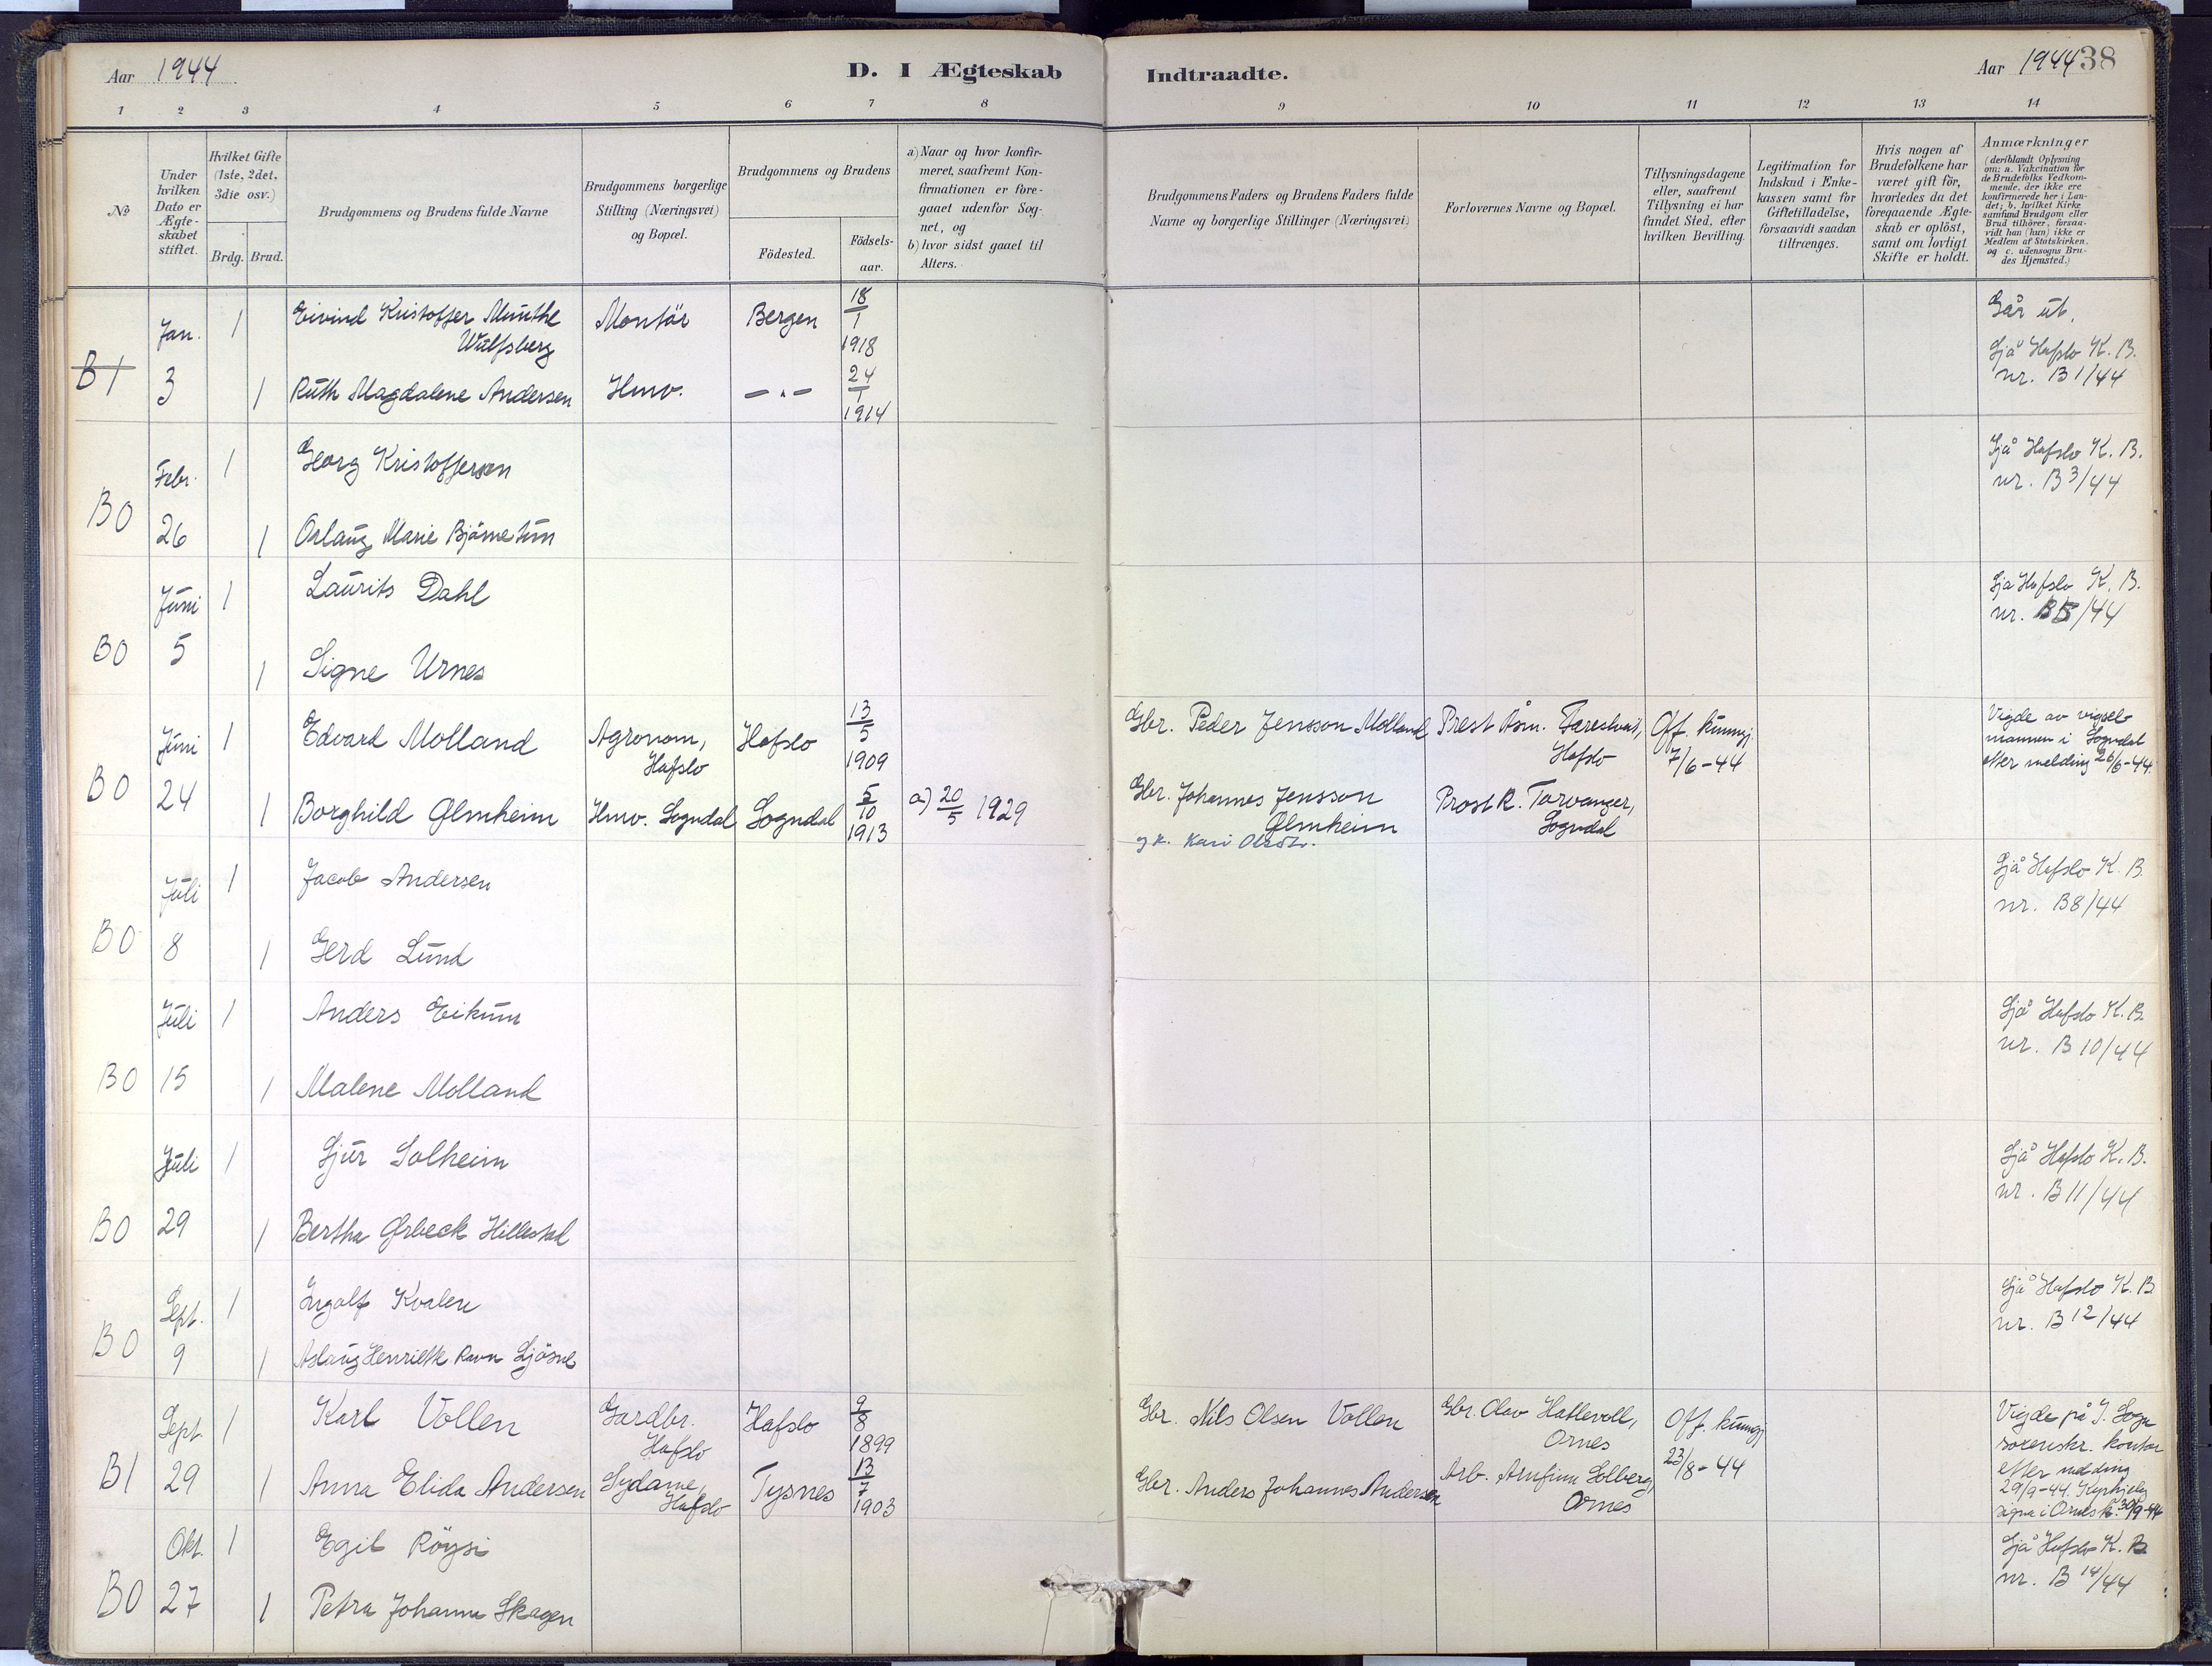 Aar 1944
D. I Ægteskab Indtraadte.
Aar 1944 38
1 2 3 4 5 6 7 8 9 10 11 12 13 14
No
Under hvilken Dato er Ægte-skabet stiftet.
Hvilket Gifte (1ste, 2det, 3die osv.)
Brdg. Brud.
Brudgommens og Brudens fulde Navne
Brudgommens borgerlige Stilling (Næringsvei) og Bopæl.
Brudgommens og Brudens
Födested.
Födsels-aar.
a) Naar og hvor konfir-
meret, saafremt Kon-
firmationen er fore-
gaaet udenfor Sog-
net, og
b) hvor sidst gaaet til
Alters.
Brudgommens Faders og Brudens Faders fulde
Navne og borgerlige Stillinger (Næringsvei)
Forlovernes Navne og Bopæl.
Tillysningsdagene
eller, saafremt
Tillysning ei har
fundet Sted, efter
hvilken Bevilling.
Legitimation for
Indskud i Enke-
kassen samt for
Giftetilladelse,
forsaavidt saadan
tiltrænges.
Hvis nogen af
Brudefolkene har
været gift för,
hvorledes da det
foregaaende Ægte-
skab er oplöst,
samt om lovligt
Skifte er holdt.
Anmærkninger
(deriblandt Oplysning
om: a. Vakcination for
de Brudefolks Vedkom-
mende, der ikke ere
konfirmerede her i Lan-
det; b. hvilket Kirke-
samfund Brudgom eller
Brud tilhörer, forsaa-
vidt han (hun) ikke er
Medlem af Statskirken,
og c. udensogns Bru-
des Hjemsted.)
B1 Jan. 3
1 Eivind Kristoffer Munthe Wulfsberg Montör Bergen 18/1 1918
1 Ruth Magdalene Andersen Hmv. — " — 24/1 1914
Går ut.
Sjå Hafslo K. B.
nr. B 1/44
B0 Febr. 26
1 Georg Kristoffersen
1 Oslaug Marie Bjørnetun
Sjå Hafslo K. B.
nr. B 3/44
B0 Juni 5
1 Laurits Dahl
1 Signe Urnes
Sjå Hafslo K. B.
nr. /44
B0 Juni 24
1 Edvard Molland Agronom, Hafslo Hafslo 13/5 1909
Gbr. Peder Jensson Molland Prest Åsm. Farestveit, Hafslo Off. kunngj. 7/6-44
Vigde av vigsels-
mannen i Sogndal
etter melding 26/6-44.
1 Borghild Ølmheim Hmv. Sogndal Sogndal 5/10 1913 a) 20/5 1929
Gbr. Johannes Jensson Ølmheim Prost R. Tarvanger, Sogndal
g k. Kari Olsdtr.
B0 Juli 8
1 Jacob Andersen
1 Gerd Lund
Sjå Hafslo K. B.
nr. B8/44
B0 Juli 15
1 Anders Eikum
1 Malene Molland
Sjå Hafslo K. B.
nr. B 10/44
B0 Juli 29
1 Sjur Solheim
1 Bertha Ørbeck Hillestad
Sjå Hafslo K. B.
nr. B 11/44
B0 Sept. 9
1 Ingolf Kvalen
1 Aslaug Henriette Ravn Sjøsne
Sjå Hafslo K. B.
nr. B 12/44
B1 Sept 29
1 Karl Vollen Gardbr. Hafslo Hafslo 9/8 1899
Gbr. Nils Olsen Vollen Gbr. Olav Hattevoll, Ornes Off. kunngj 23/8-44
1 Anna Elida Andersen Sydame, Hafslo Tysnes 13/7 1903
Gbr. Anders Johannes Andersen Arb. Arnfinn Solberg, Ornes
Vigde på I. Sogn
sorenskr. kontor
etter melding
29/9-44. Kyrkjeleg
signa i Ornes k. 30/9-44
B0 Okt. 27
1 Egil Röysi
1 Petra Johanne Skagen
Sjå Hafslo K. B
nr. B 14/44